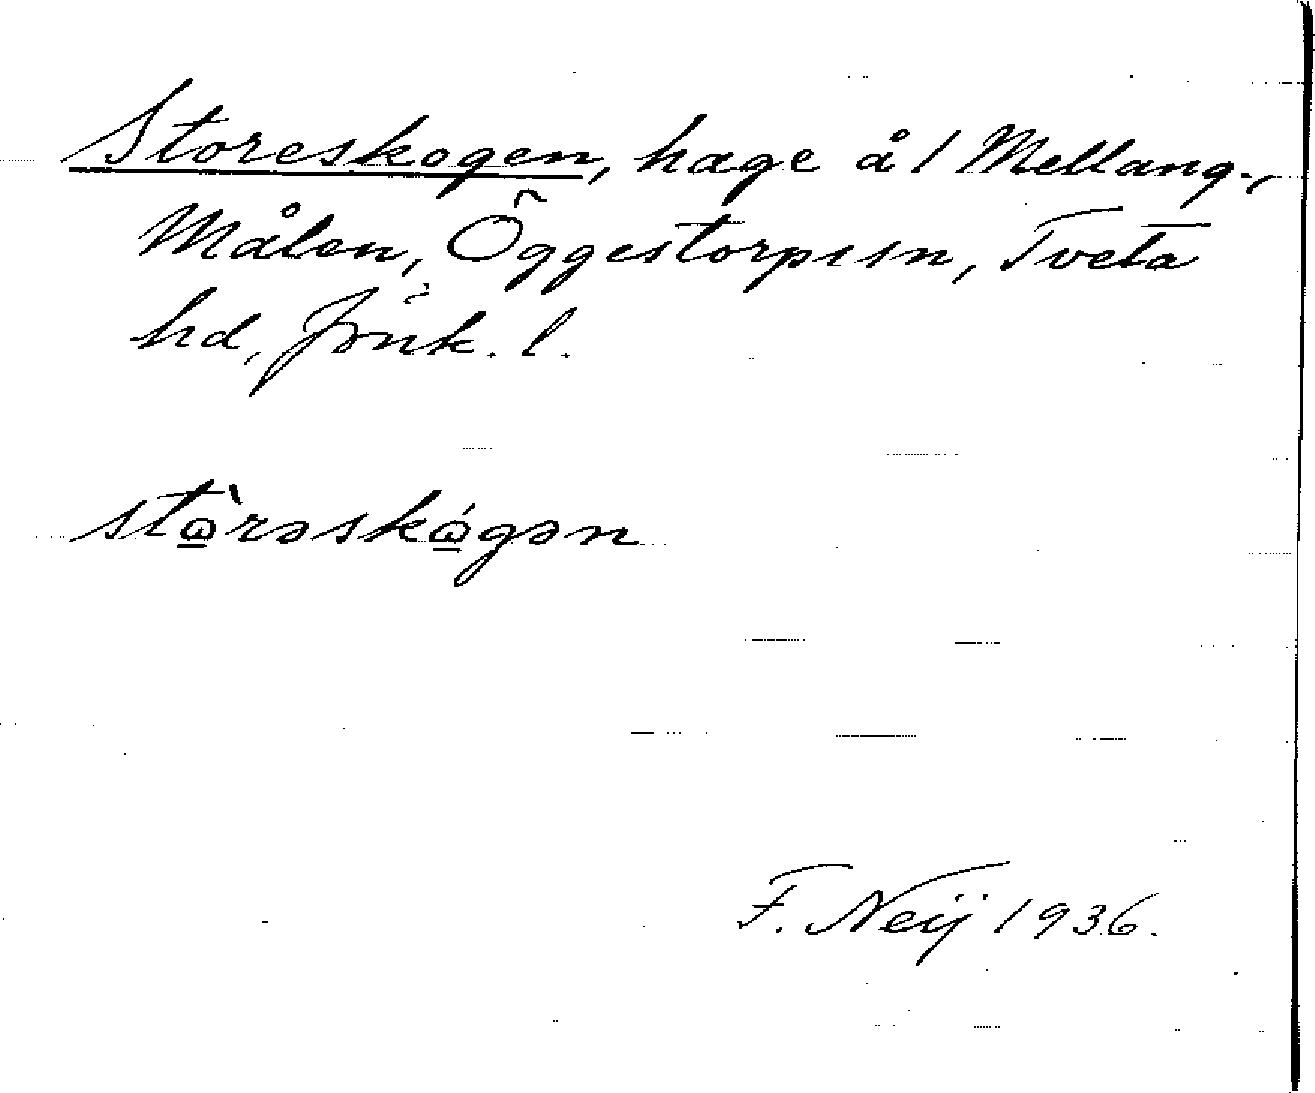 Storeskogen, hage å 1 Mellang.,
Målen, Öggestorps sn, Tveta
hd, Jönk. l.
stὼ̲rəskώ̲gən
F. Neij 1936.